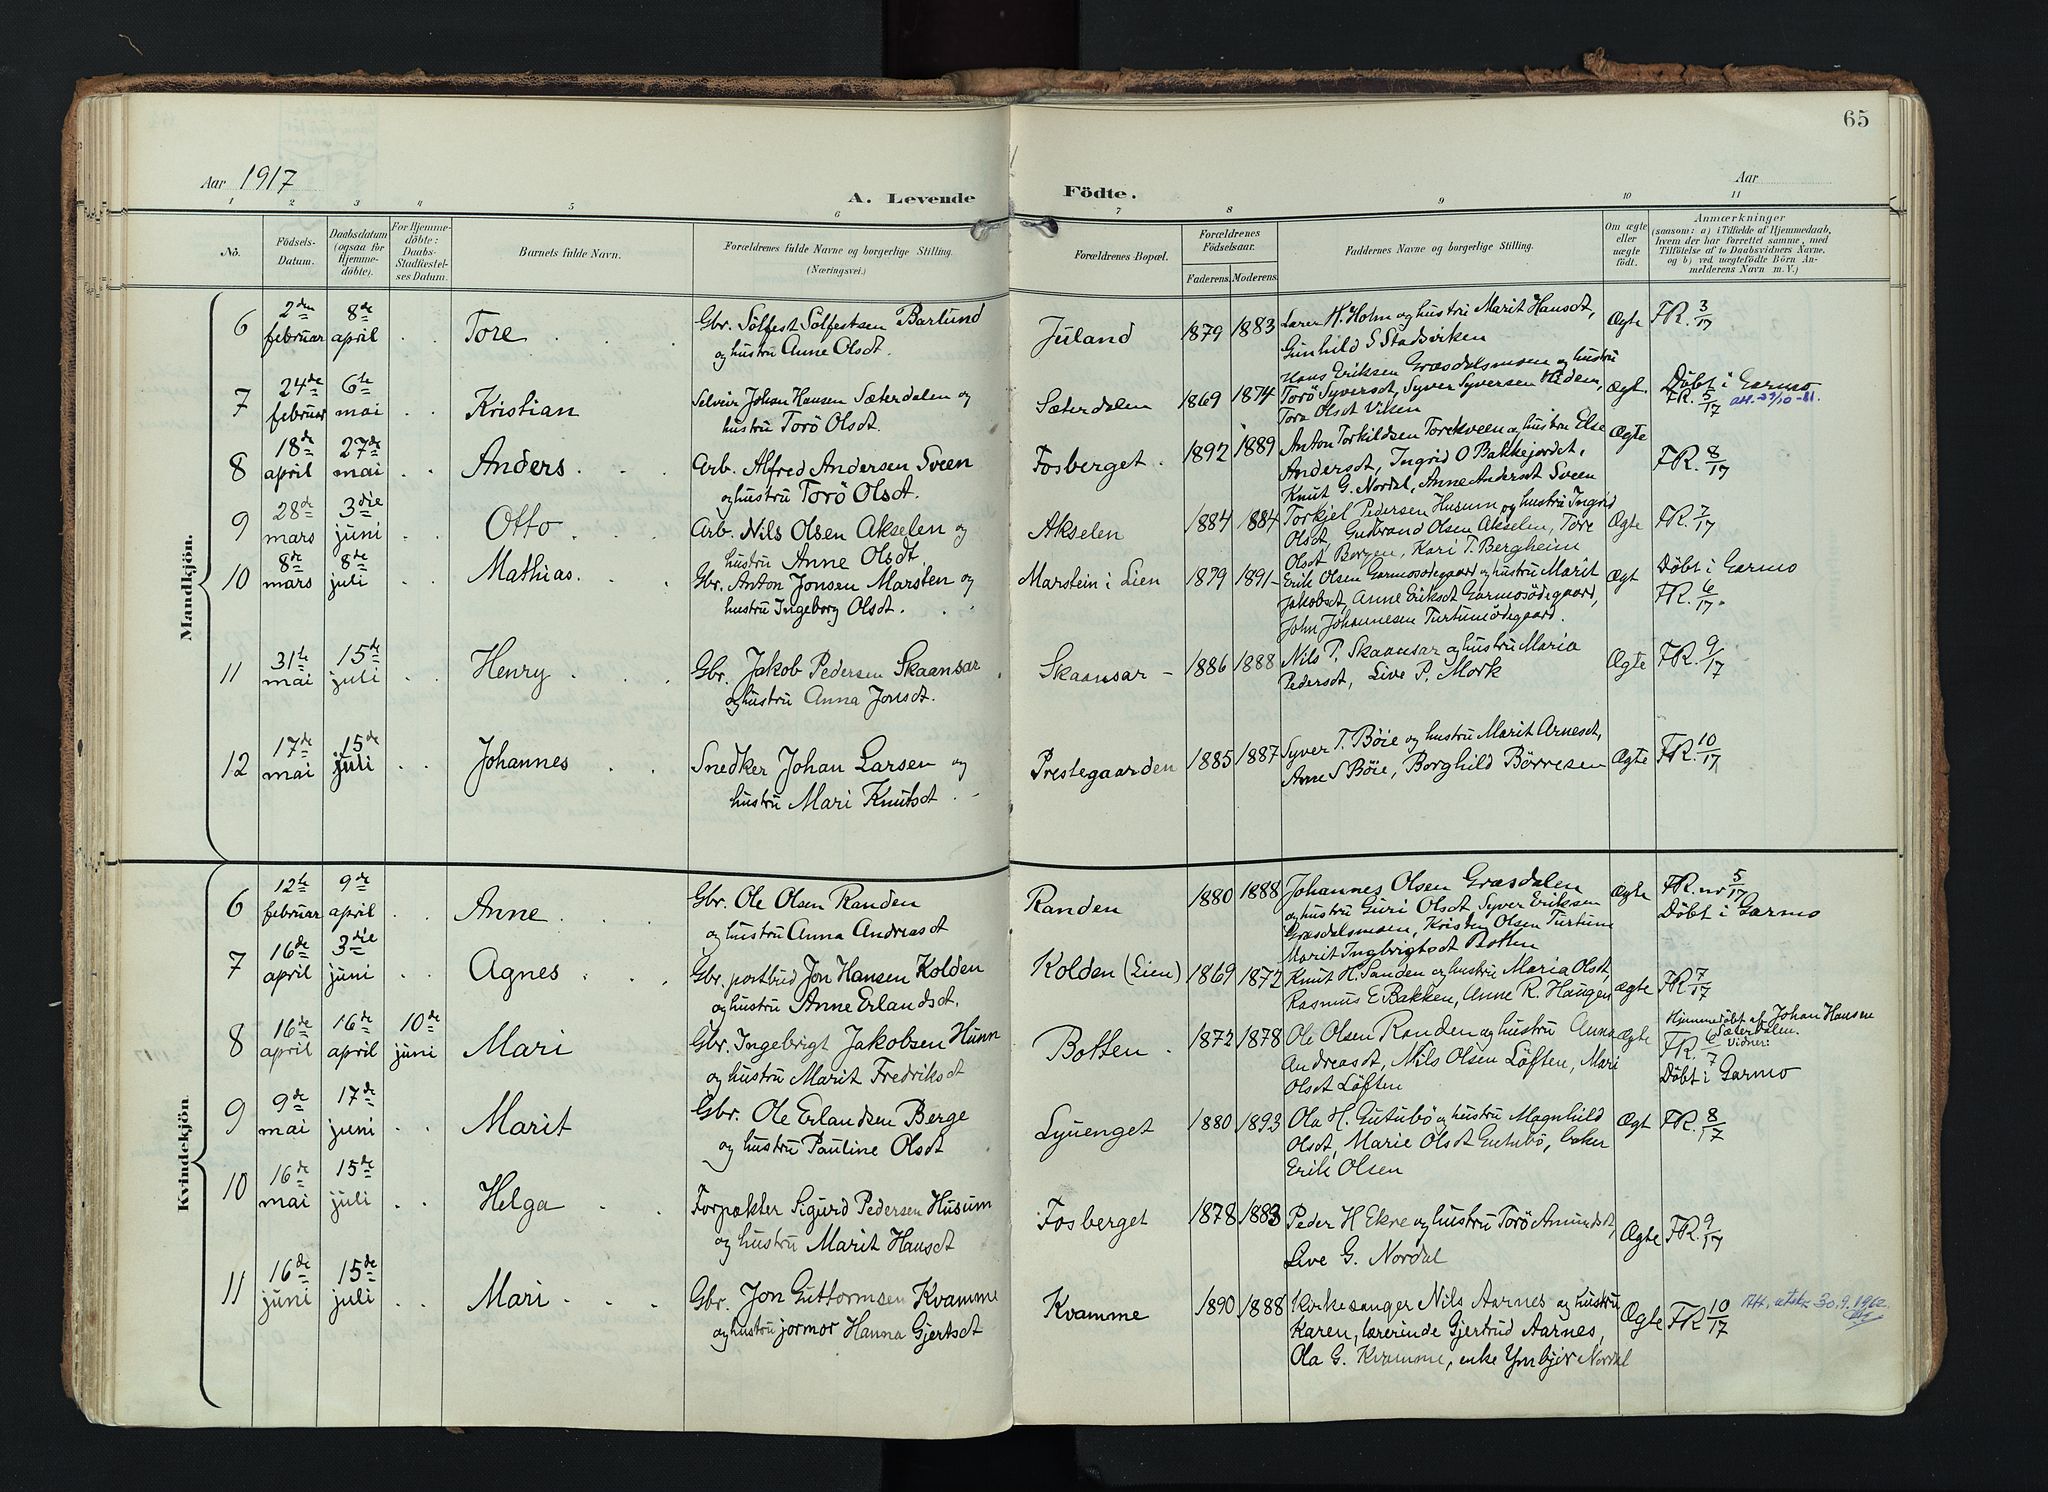 65
Aar 1917
A. Levende
Födte.
Aar
1 2 3 4 5 6 7 8 9 10 11
No.
Födsels-Datum.
Daabsdatum (ogsaa for Hjemmedöbte).
For Hjemmedöbte: Daabs-Stadfæstelses Datum.
Barnets fulde Navn.
Forældrenes fulde Navne og borgerlige Stilling. (Næringsvei.)
Forældrenes Bopæl.
Forældrenes Födselsaar.
Faderens. Moderens.
Faddernes Navne og borgerlige Stilling.
Om ægte eller uægte födt.
Anmærkninger
(saasom: a) i Tilfælde af Hjemmedaab, hvem der har forrettet samme, med Tilföielse af to Daabsvidners Navne, og b) ved uægtefödte Börn Anmelderens Navn m. V.)
Mandkjön.
6 2den februar 8de april Tore Gbr. Sölfest Sölfestsen Barlund
og hustru Anne Olsdt. Juland 1879 1883 Lærer H. Holm og hustru Marit Hansdt,
Gunhild S Stadsviken Ægte FR. 3/17
7 24de februar 6te mai Kristian Selveier Johan Hansen Sæterdalen og
hustru Torö Olsdt. Sæterdalen 1869 1874 Hans Eriksen Græsdalsmoen og hustru
Torö Syversdt, Syver Syversen Hidem,
Tora Olsdt Viken Ægt Döbt i Garmo
FR. 5/17
8 18de april 27de mai Anders Arb. Alfred Andersen Sveen
og hustru Torö Olsdt. Fosberget 1892 1889 Anton Torkildsen Torekveen og hustru Else
Andersdt, Ingrid O Bakkejordet,
Knut G. Nordal, Anne Andersdt Sveen Ægte FR. 8/17
9 28de mars 3die juni Otto Arb. Nils Olsen Akselen og
hustru Anne Olsdt Akselen 1884 1884 Torkjel Pedersen Husum og hustru Ingrid
Olsdt, Gudbrand Olsen Akselen, Tore
Olsdt Borgen, Kari T. Bergheim Ægte FR. 7/17
10 8de mars 8de juli Mathias Gbr. Anton Jonsen Marsten og
hustru Ingeborg Olsdt. Marstein i Lien 1879 1891 Erik Olsen Garmosödegaard og hustru Marit
Jakobsdt, Anne Eriksdt Garmosödegaard,
John Johannesen Turtumödegaard. Ægt Döbt i Garmo
FR. 6/17.
11 31te mai 15de juli Henry Gbr. Jakob Pedersen Skaansar
og hustru Anna Jonsdt. Skaansar 1886 1888 Nils P. Skaansar og hustru Maria
Pedersdt, Live P. Mork Ægte FR. 9/17
12 17de mai 15de juli Johannes Snedker Johan Larsen og
hustru Mari Knutsdt Prestegaarden 1885 1887 Syver T. Böie og hustru Marit Arnesdt,
Arne S Böie, Borghild Börresen Ægte FR. 10/17
Kvindekjön
6 12te februar 9de april Anne Gbr. Ole Olsen Randen
og hustru Anna Andreasdt Randen 1880 1888 Johannes Olsen Græsdalen
og hustru Guri Olsdt Syver Eriksen
Græsdalsmoen, Kristen Olsen Turtum
Marit Ingbrigtsdt Botten Ægte FR. nr 5/17
Döbt i Garmo
7 16de april 3die juni Agnes Gbr. postbud Jon Hansen Kolden
og hustru Anne Erlandsdt. Kolden (Lien) 1869 1872 Knut H. Sanden og hustru Maria Olsdt,
Rasmus E Bakken, Anne R. Haugen ægte FR 7/17
8 16de april 16de april 10de juni Mari Gbr. Ingebrigt Jakobsen Hunn
og hustru Marit Fredriksdt Botten 1872 1878 Ole Olsen Randen og hustru Anna
Andreasdt, Nils Olsen Löften, Mari
Olsdt Löften Ægte Hjemmedöbt af Johan Hansen
Sæterdalen.
FR. 6/7 Vidner:
Döbt i Garmo
9 9de mai 17de juni Marit Gbr. Ole Erlandsen Berge
og hustru Pauline Olsdt Lyuenget 1880 1893 Ola H. Gutubö og hustru Magnhild
Olsdt, Marie Olsdt Gutubö, baker
Erik Olsen Ægt FR. 8/17
10 16de mai 15de juli Helga Forpakter Sigurd Pedersen Husum
og hustru Marit Hansdt Fosberget 1878 1883 Peder H Ekre og hustru Torö Amundsdt,
Live G. Nordal Ægte FR. 9/17
11 16de juni 15de juli Mari Gbr. Jon Guttormsen Kvamme
og hustru jormor Hanna Gjertsdt Kvamme 1890 1888 Kirkesanger Nils Aarnes og hustru
Karen, lærerinde Gjertrud Aarnes,
Ola G. Kvamme, enke Ymbjör Nordal Ægte FR 10/17 Att. utst. 30.9.1962.